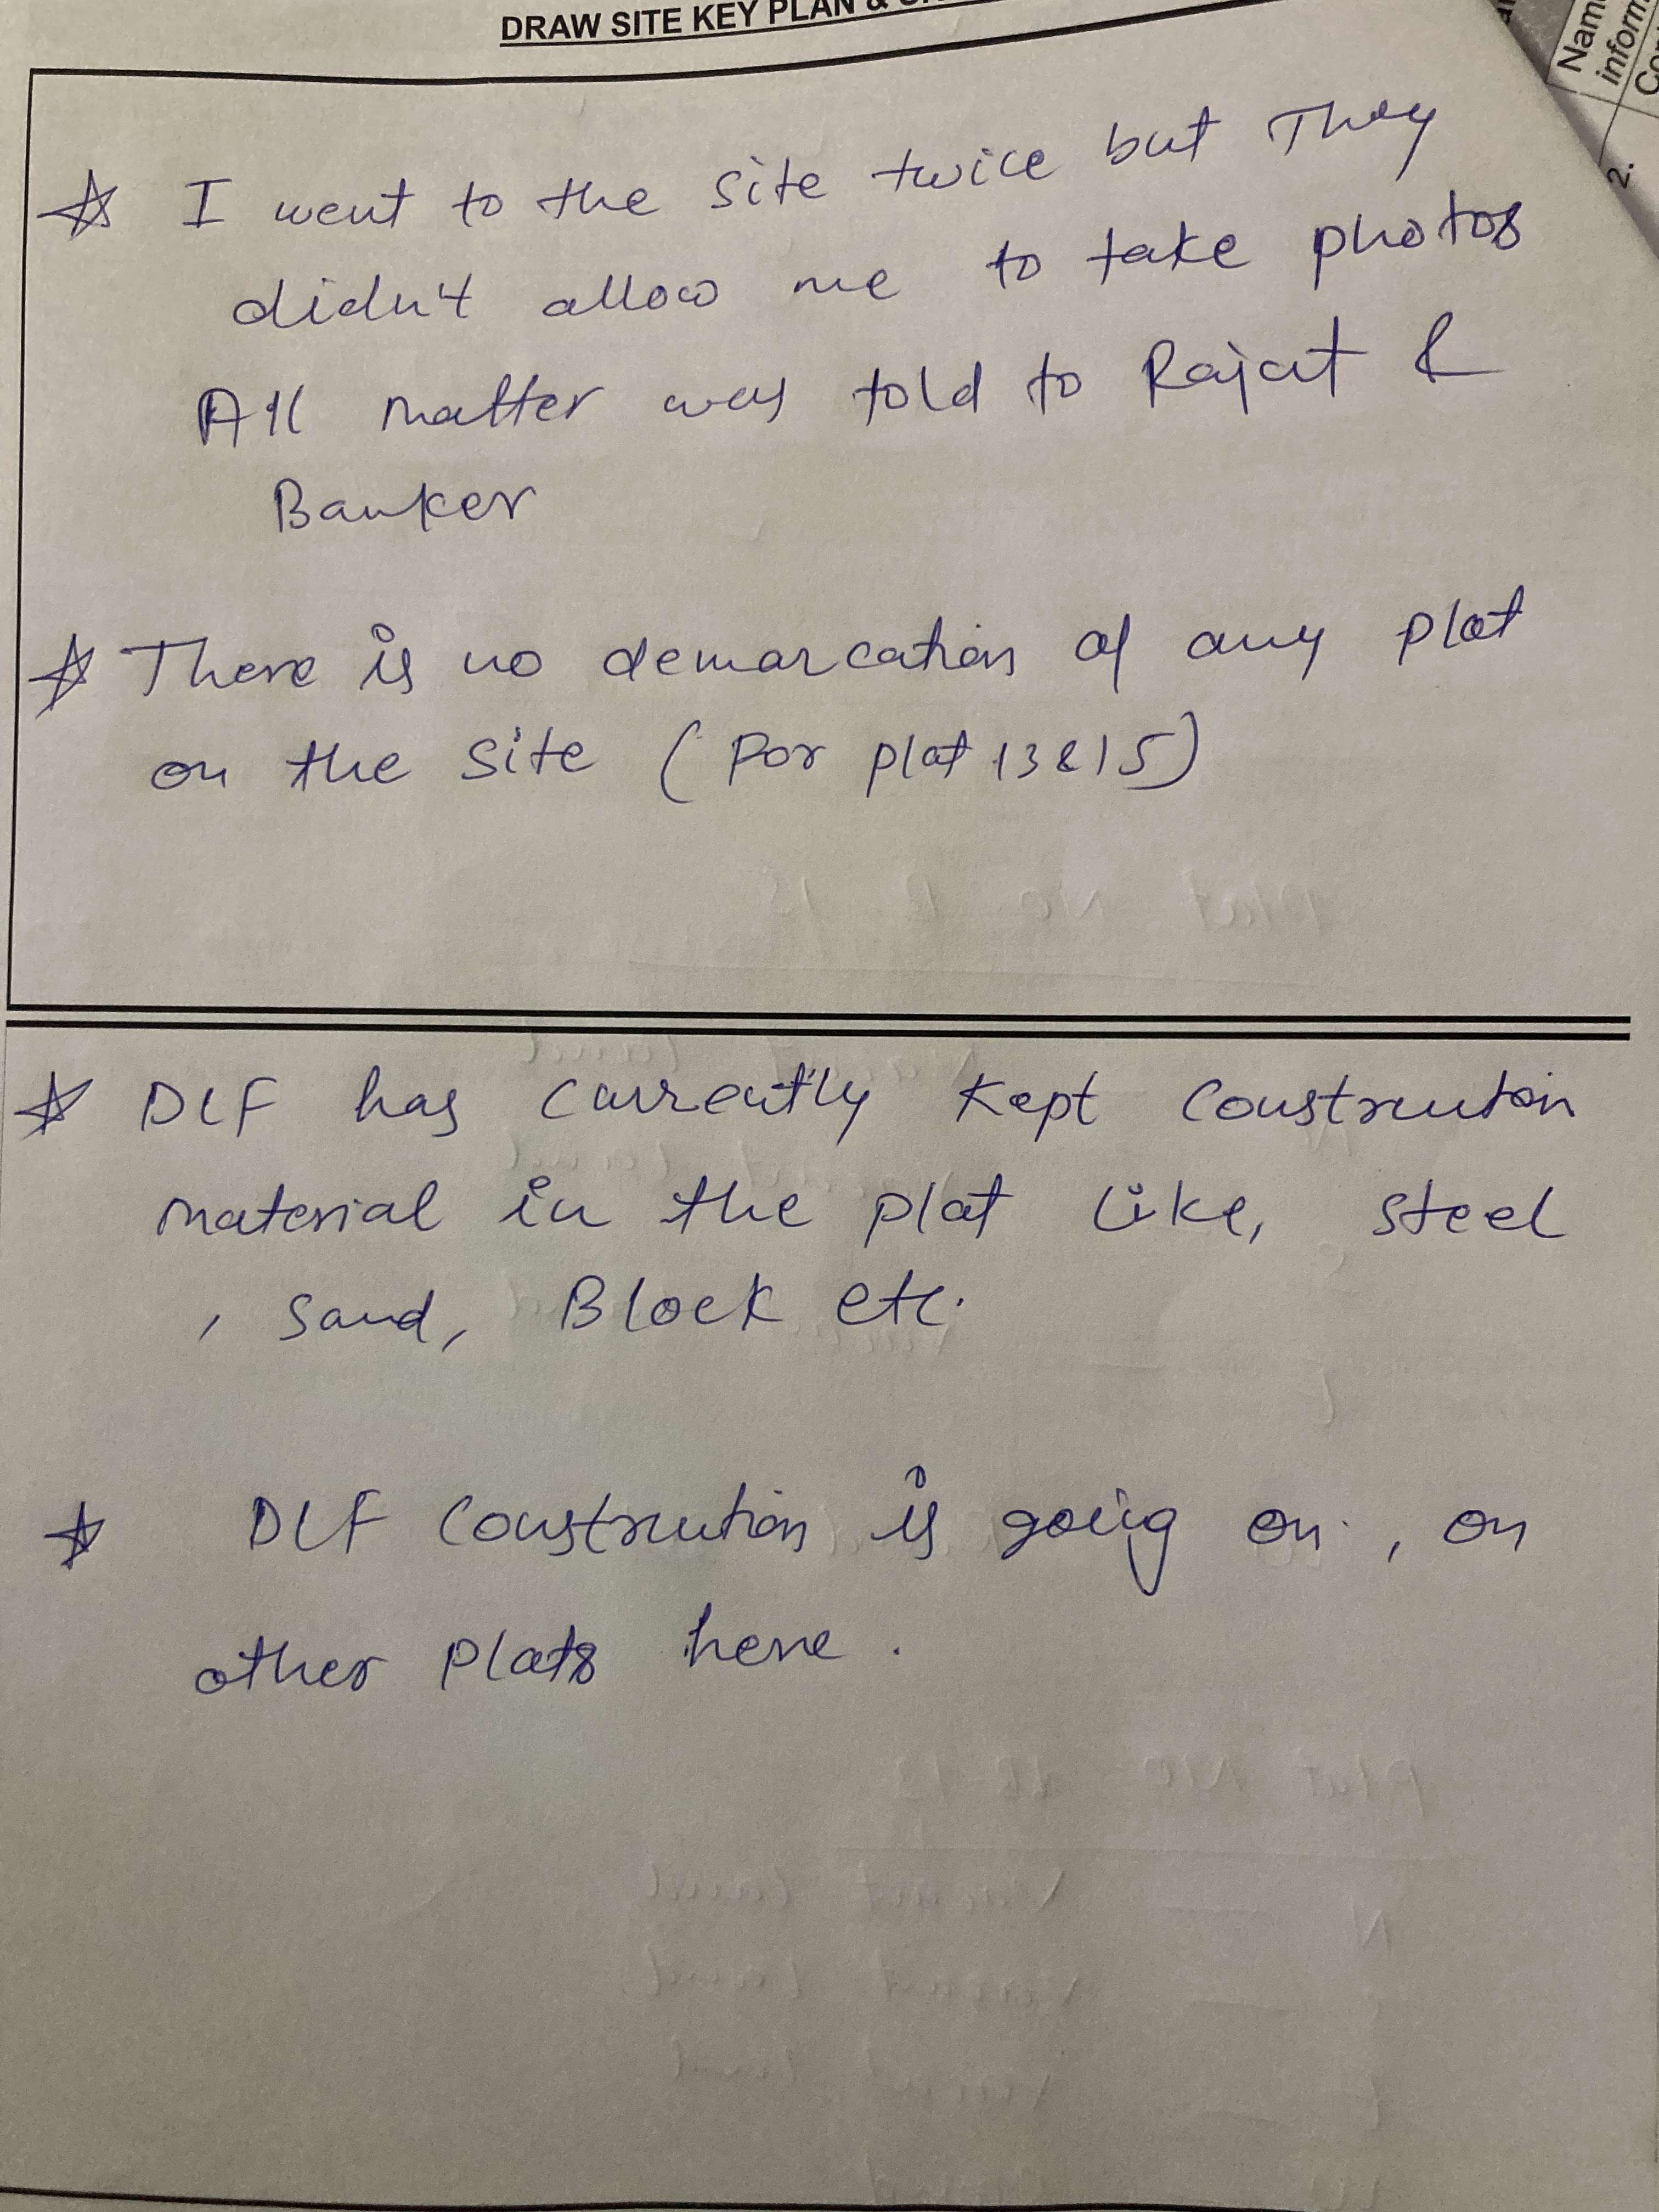 DRAW SITE KEY PLAN &
Nam
inform
Con
2.
☆ I went to the site twice but They
didn't allow me to take photos
All matter was told to Rajat &
Banker
☆ There is no demarcation of any plot
on the site ( For plot 13 & 15)
☆ DLF has currently Kept Construction
material in the plot like, steel
, sand, Block etc.
☆ DLF Construction is going on , on
other plots here .